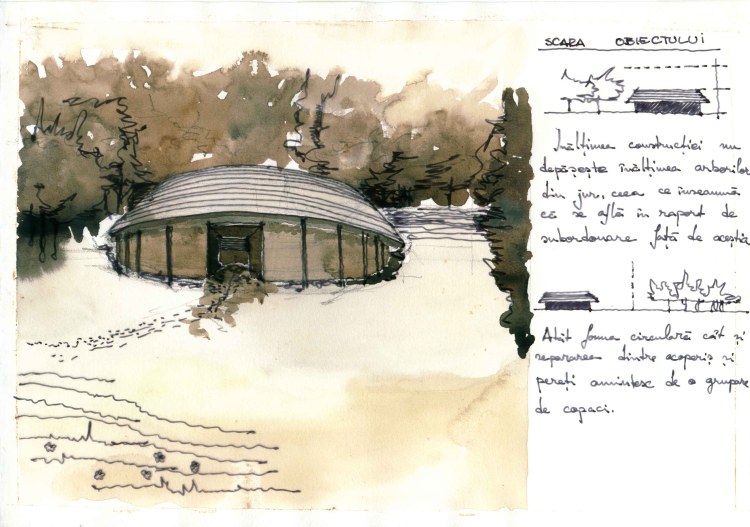 SCARA OBIECTULUI
Înălțimea construcției nu
depășește înălțimea arborilor
din jur, ceea ce înseamnă
că se află în raport de
subordonare față de aceștia
Atât forma circulară cât și
separarea dintre acoperiș și
pereți amintesc de o grupare
de copaci.